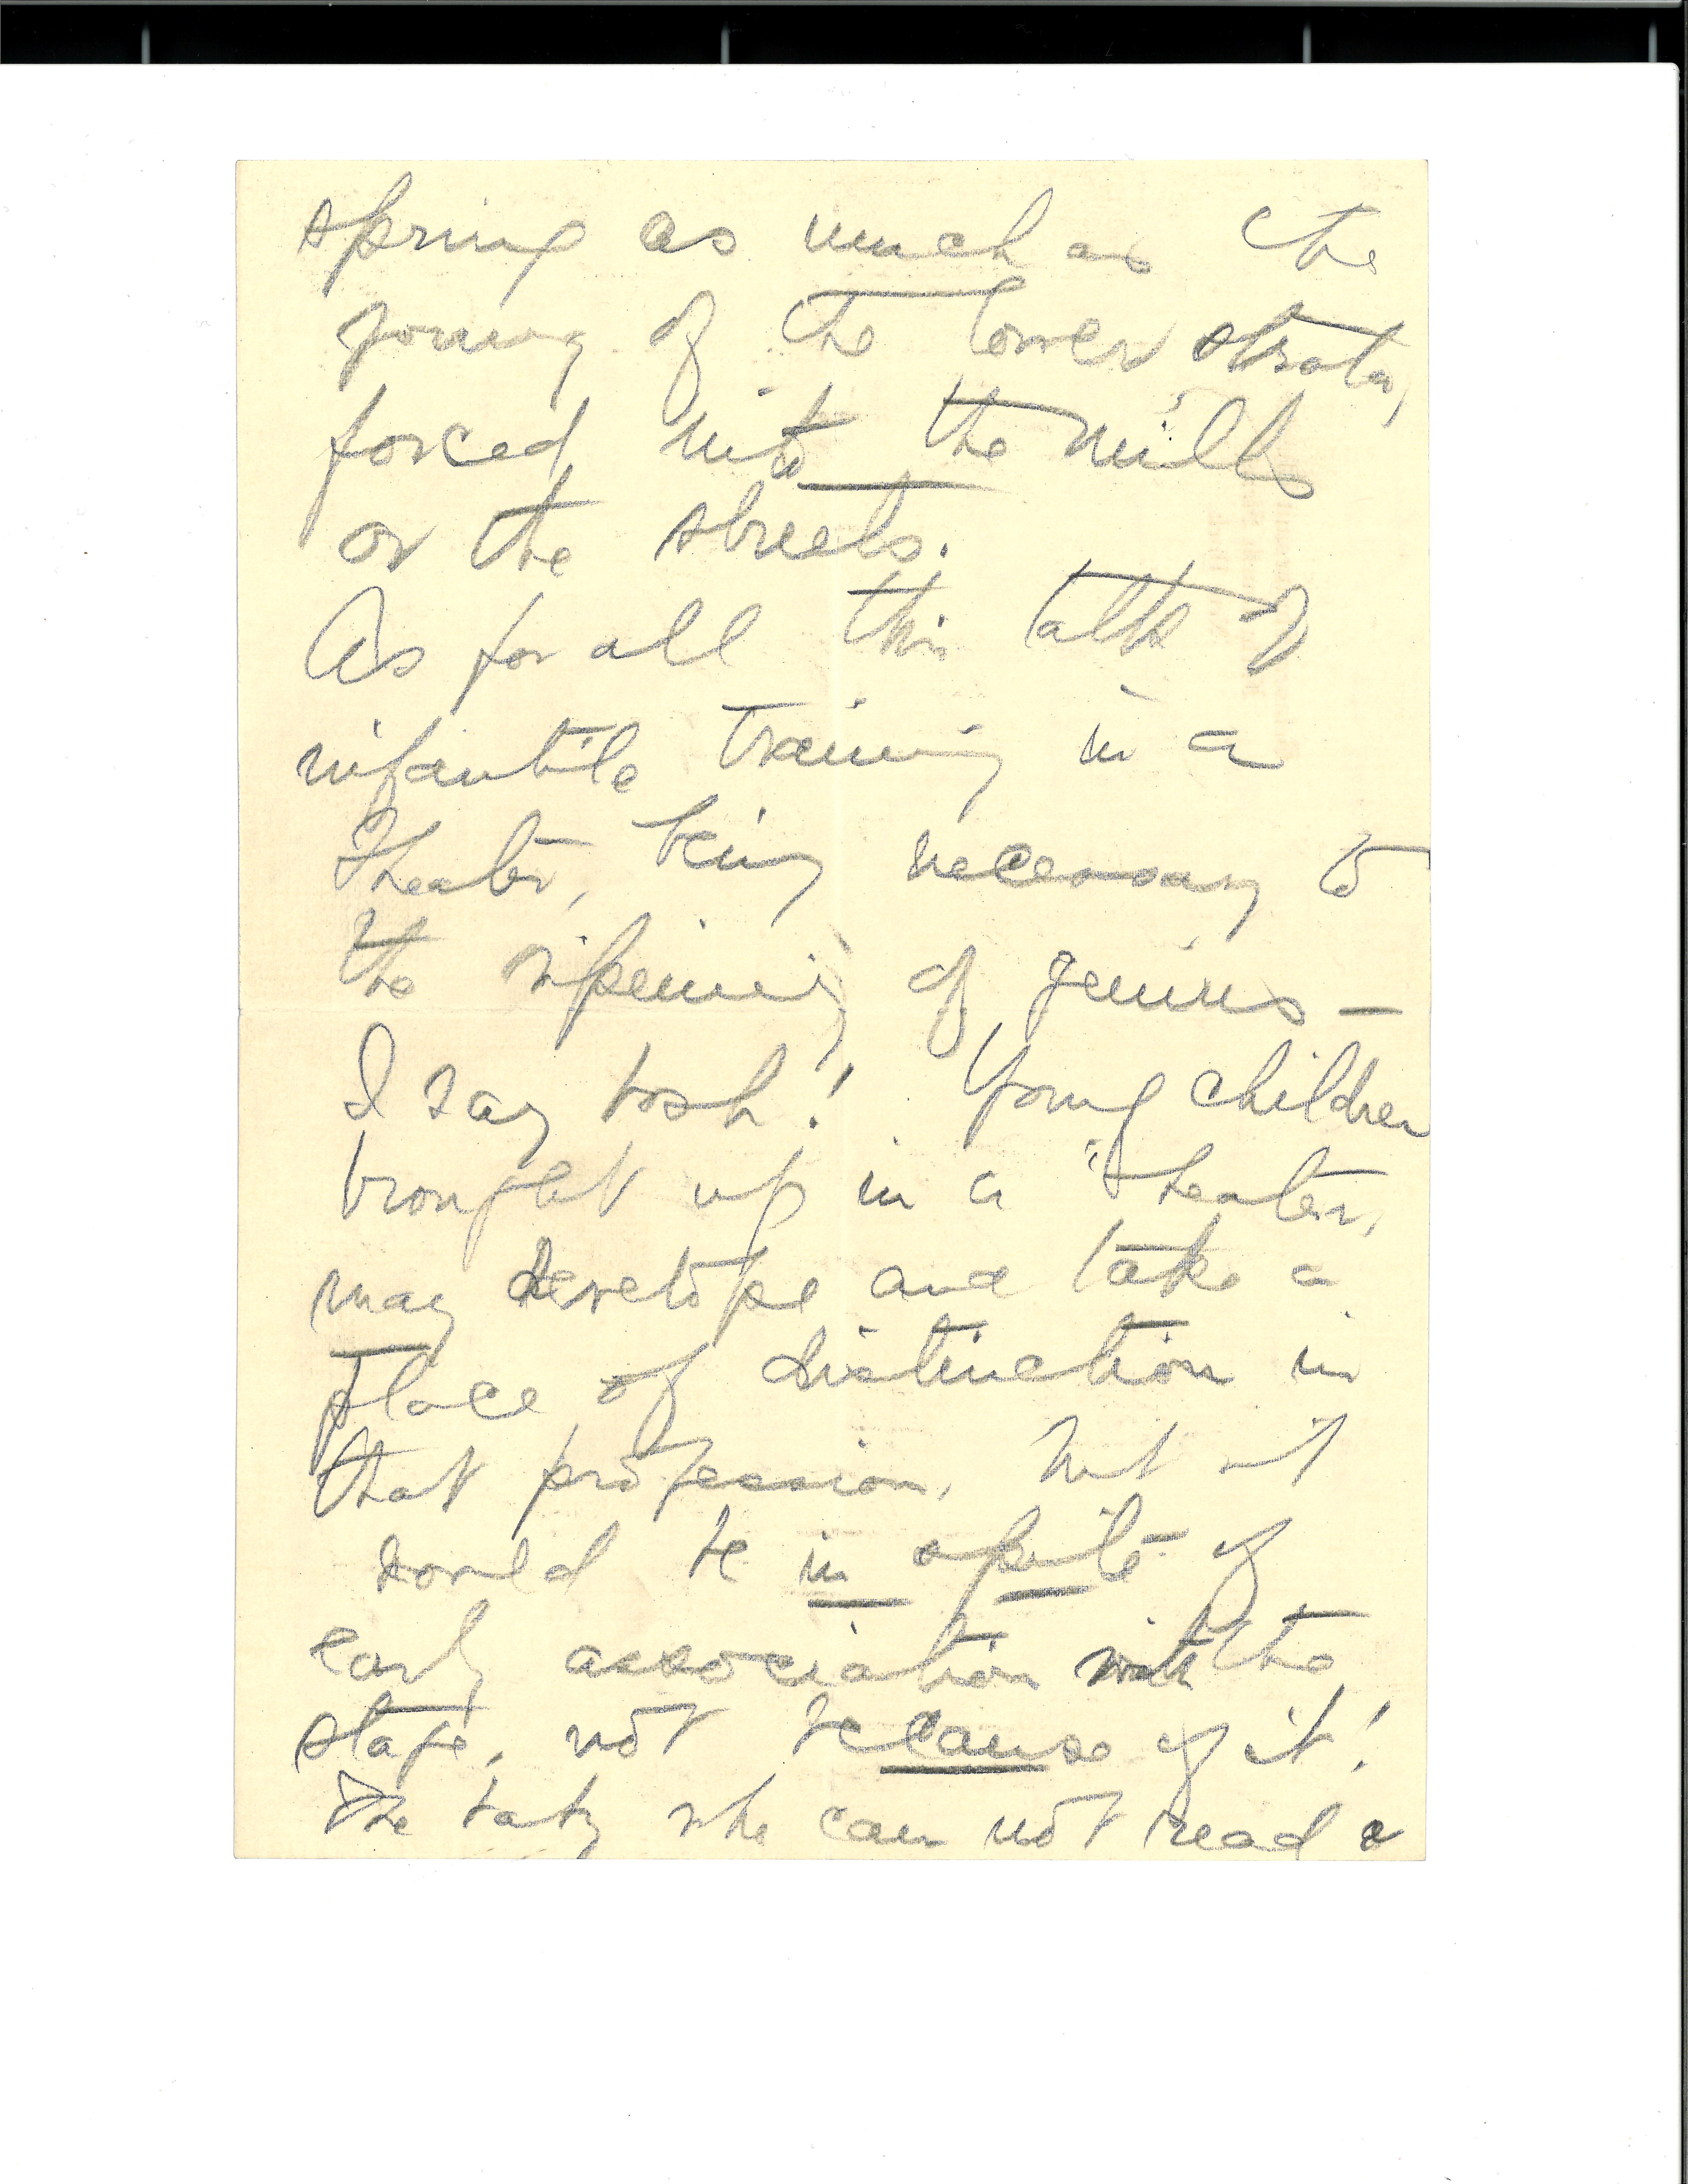 spring as much as the
young of the lower strata,
forced into the mills
or the streets.
As for all this talk of
infantile training in a
Theater, being necessary to
the ripening of genius —
I say bosh! Young children
brought up in a Theater,
may develope and take a
place of distinction in
that profession, but it
would be in spite of
early association with the
stage, not because of it!
The baby who can not read a